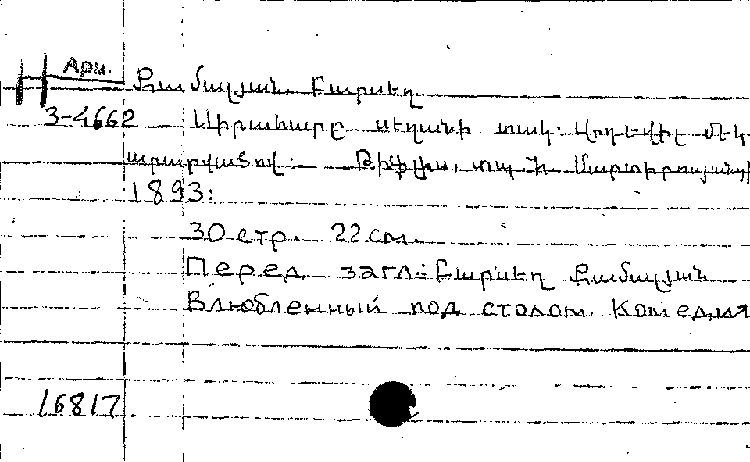 Арм.
Քամալյան Բարսեղ
3-4662 Սիրահարը սեղանի տակ: Վոդեվիլ մեկ
արարվածով: Թիֆլիս, տպ. Մարտիրոսյանցի
1893:
30 стр. 22 см.
Перед загл.: Բարսեղ Քամալյան
Влюбленный под столом. Комедия
16817.